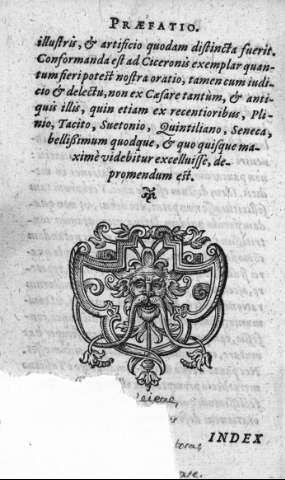 PRÆFATIO.
illustris, & artificio quodam distincta fuerit.
Conformanda est ad Ciceronis exemplar quan-
tum fieri potest nostra oratio, tamen cum iudi-
cio & delectu, non ex Cæsare tantùm, & anti-
quis illis, quin etiam ex recentioribus, Pli-
nio, Tacito, Suetonio, Quintiliano, Seneca,
bellißimum quodque, & quo quisque ma-
ximè videbitur excelluisse, de-
promendum est.
INDEX